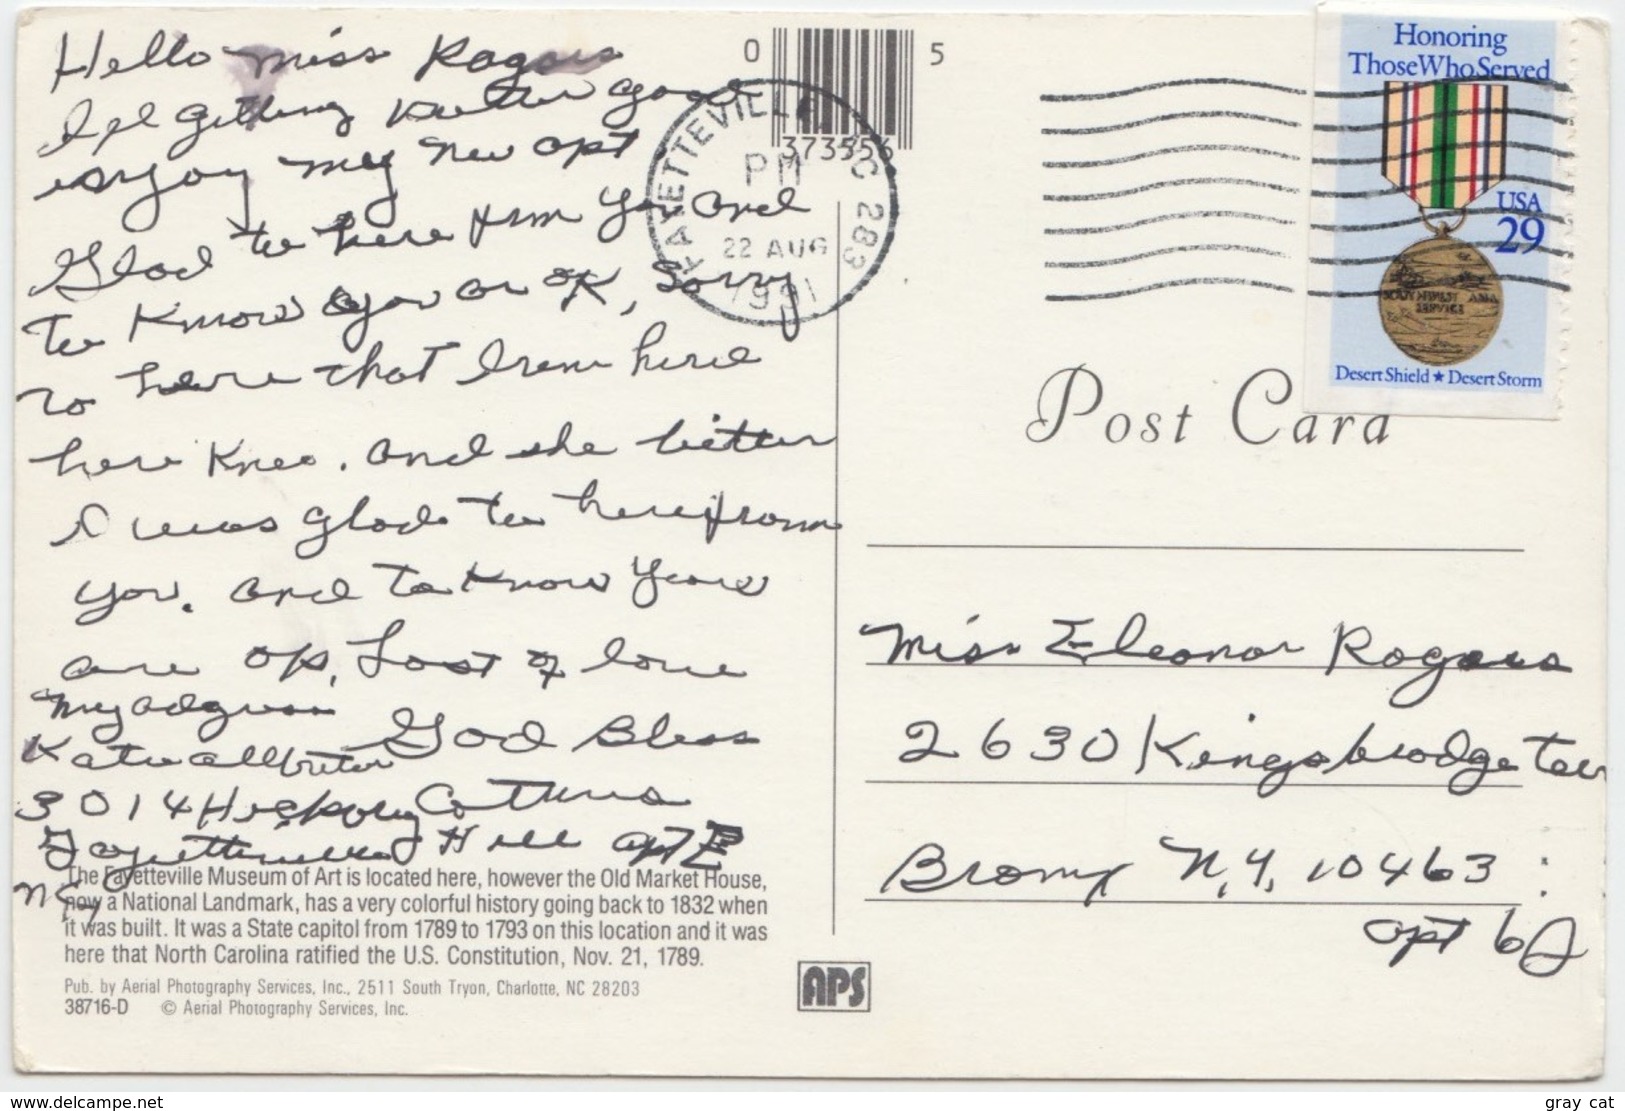 Hello Miss Rogers
getting better good
enjoy my new apt
Glad to here from you and
to know you ar ok, Sorry
to here that Irene hired
here knee. and she better
I was glad to here from
you. and to know years
are ok, Lost of love
My adgress
Katie
God Bless
3014 Hickory
Fayetteville Hill apt E
N.C.
The Fayetteville Museum of Art is located here, however the Old Market House,
now a National Landmark, has a very colorful history going back to 1832 when
it was built. It was a State capitol from 1789 to 1793 on this location and it was
here that North Carolina ratified the U.S. Constitution, Nov. 21, 1789.
Pub. by Aerial Photography Services, Inc., 2511 South Tryon, Charlotte, NC 28203
38716-D © Aerial Photography Services, Inc.
APS
0 5
373556
FAYETTEVILLE NC 283
PM
22 AUG
1991
Honoring
Those Who Served
USA
29
SOUTHWEST ASIA
SERVICE
Desert Shield ★ Desert Storm
Post Card
Miss Eleanor Rogers
2630 Kingsbrodge Ter
Bronx N.Y. 10463
apt 6J
www.delcampe.net
gray cat